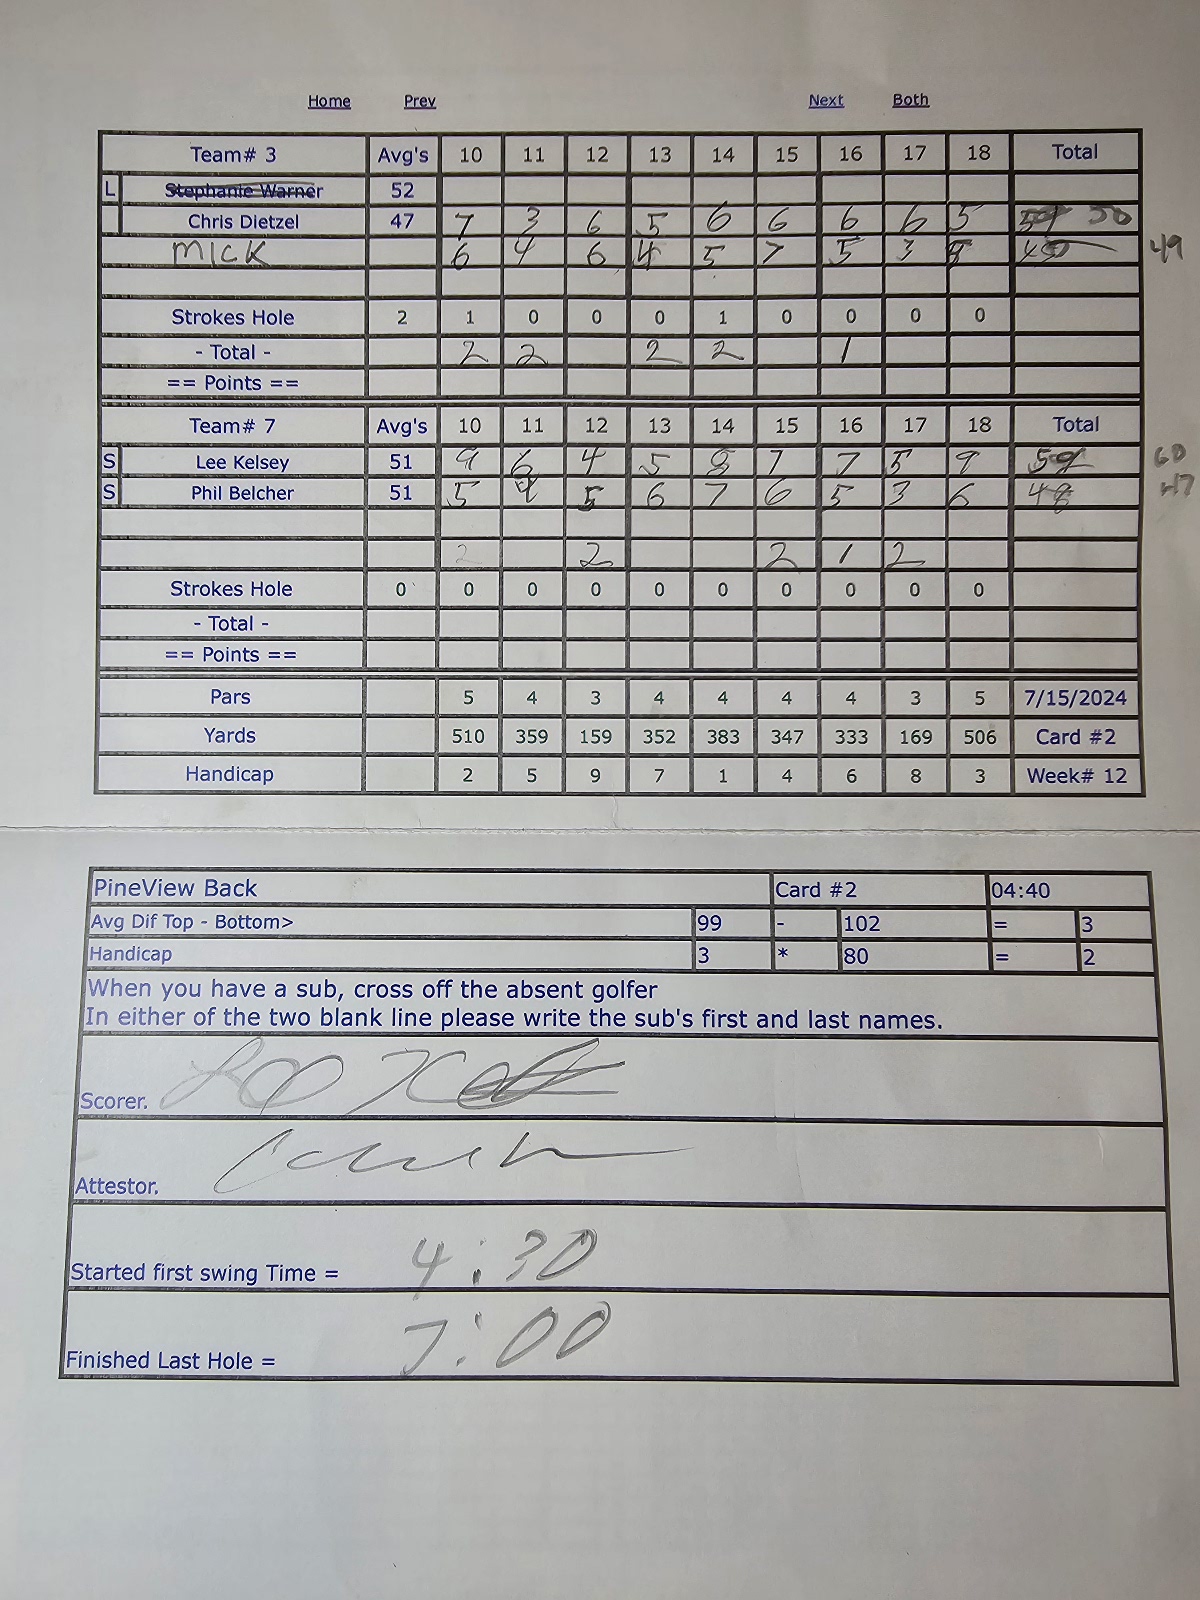 Home Prev Next Both
Team# 3 Avg's 10 11 12 13 14 15 16 17 18 Total
L Stephanie Warner 52
Chris Dietzel 47 7 3 6 5 6 6 6 6 5 50
MICK 6 4 6 4 5 7 5 3 49
Strokes Hole 2 1 0 0 0 1 0 0 0 0
- Total - 2 2 2 2 1
== Points ==
Team# 7 Avg's 10 11 12 13 14 15 16 17 18 Total
S Lee Kelsey 51 9 6 4 5 8 7 7 5 9 59 60
S Phil Belcher 51 5 4 5 6 7 6 5 3 6 48 47
2 2 2 1 2
Strokes Hole 0 0 0 0 0 0 0 0 0 0
- Total -
== Points ==
Pars 5 4 3 4 4 4 4 3 5 7/15/2024
Yards 510 359 159 352 383 347 333 169 506 Card #2
Handicap 2 5 9 7 1 4 6 8 3 Week# 12
PineView Back Card #2 04:40
Avg Dif Top - Bottom> 99 - 102 = 3
Handicap 3 * 80 = 2
When you have a sub, cross off the absent golfer
In either of the two blank line please write the sub's first and last names.
Scorer.
Attestor.
Started first swing Time = 4:30
Finished Last Hole = 7:00